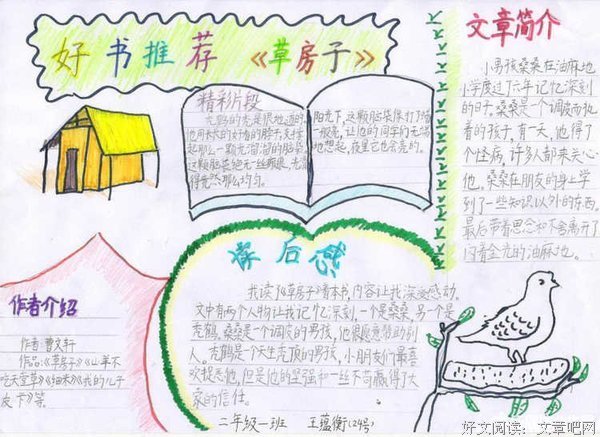 好书推荐 《草房子》
精彩片段
秃鹤的秃是很地道的。
他用长长的好看的脖子,支撑
起那么一颗光溜溜的脑袋,
这颗脑袋绝无一丝瘢痕,光滑
得竟然那么均匀。
阳光下,这颗脑袋像打了蜡
一般亮,让他的同学们无端
地想起,夜里它也会亮的。
文章简介
小男孩桑桑在油麻地
小学度过六年记忆深刻
的日子。桑桑是一个调皮而执
着的孩子,有一天,他得了
个怪病,许多人都来关心
他。桑桑在朋友的身上学
到了一些知识以外的东西。
最后带着思念和不舍离开了
闪着金光的油麻地。
作者介绍
作者:曹文轩
作品:《草房子》《山羊不
吃天堂草》《细米》《我的儿子
皮卡》等。
读后感
我读了《草房子》看本书,内容让我深受感动。
文中有两个人物让我记忆深刻,一个是桑桑,另一个是
秃鹤。桑桑是一个调皮的男孩,他很愿意帮助别
人。秃鹤是一个天生秃顶的男孩,小朋友们最喜
欢捉弄他,但是他的坚强和一丝不苟赢得了大
家的信任。
二年级一班 王蕴衡(24号)
好文阅读:文章吧网